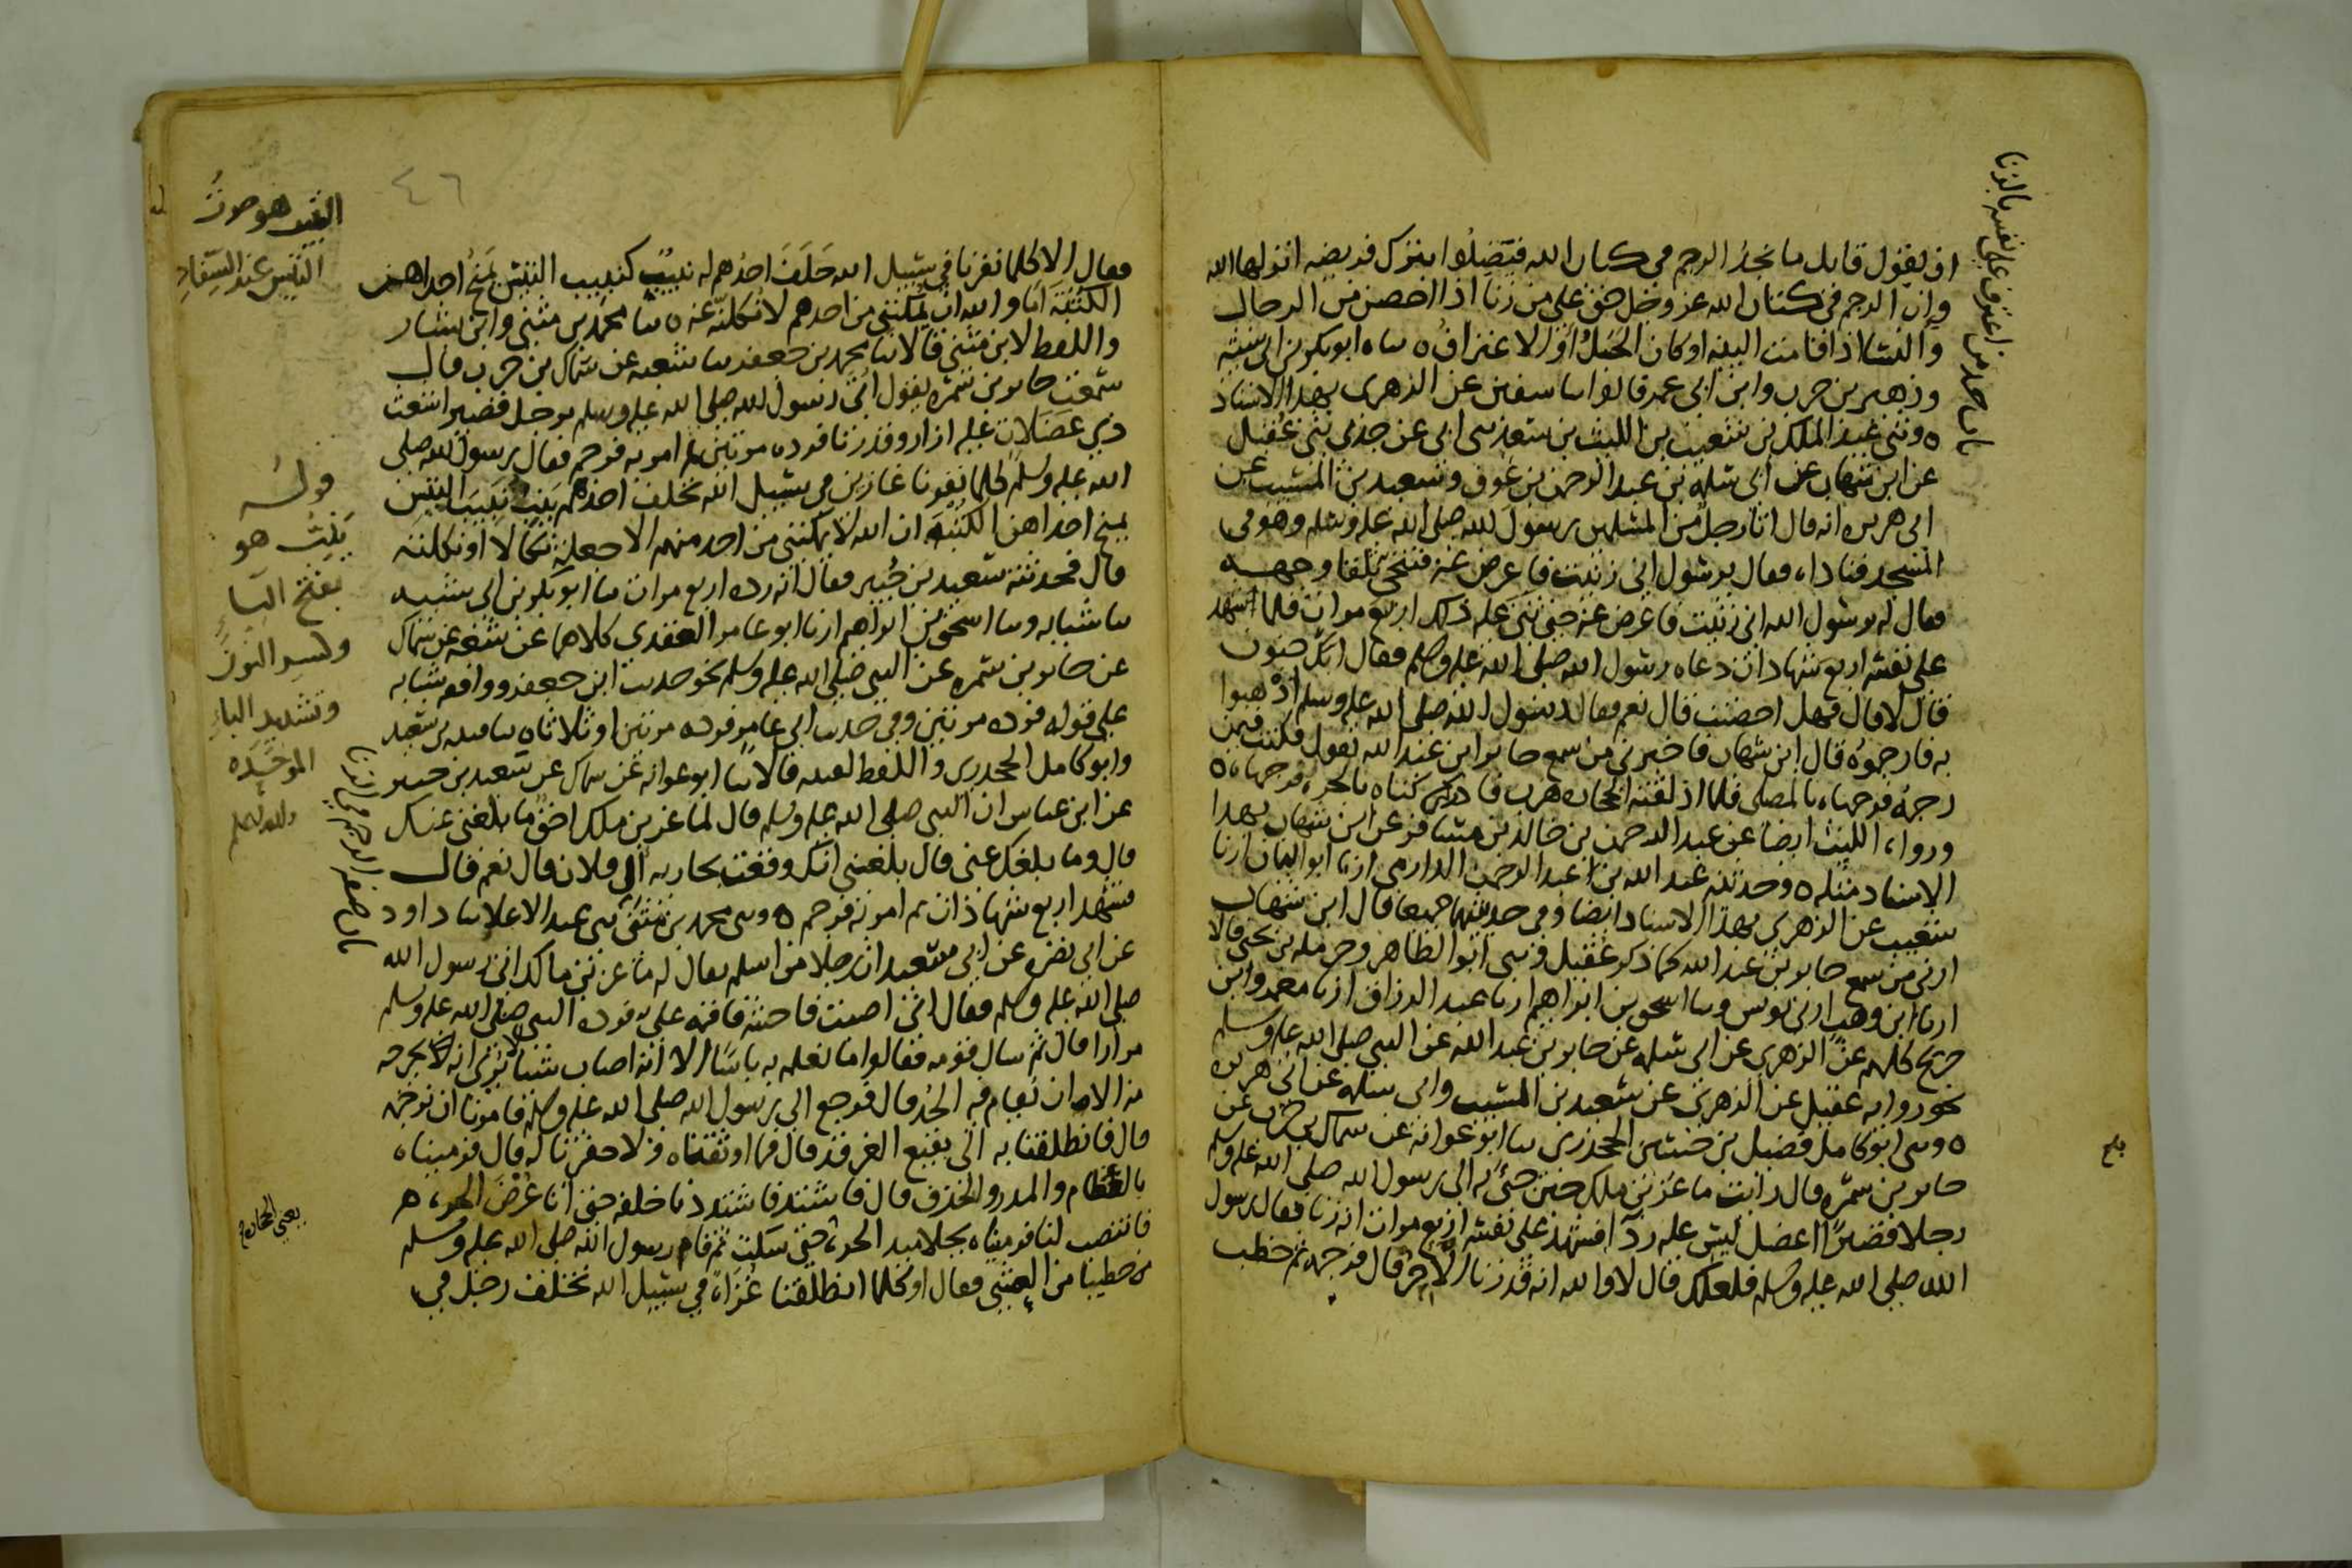 باب حد من اعترف على نفسه بالزنا
ان يقول قايل ما نجد الرجم في كتاب الله فيضلوا بترك فريضه انزلها الله
وان الرجم في كتاب الله عز وجل حق على من زنا اذا احصن من الرجال
والنسا اذا قامت البينه او كان الحبل او الاعتراف ٥ ساه ابو بكر بن ابي شيبه
وزهير بن حرب وابن ابي عمر قالوا سا سفين عن الزهري بهذا الاسناد
٥ وثني عبد الملك بن شعيب بن الليث بن سعد ثني ابي عن جدي ثني عقيل
عن ابن شهاب عن ابي سلمه بن عبد الرحمن بن عوف وسعيد بن المسيب عن
ابي هريره انه قال اتا رجل من المسلمين رسول الله صلى الله عليه وسلم وهو في
المسجد فناداه فقال يرسول اني زنيت فاعرض عنه فتنحى تلقا وجهه
فقال له يرسول الله اني زنيت فاعرض عنه حتى ثنى عليه ذلك اربع مرات فلما شهد
على نفسه اربع شهادات دعاه رسول الله صلى الله عليه وسلم فقال ابك جنون
قال لا قال فهل احصنت قال نعم فقال رسول الله صلى الله عليه وسلم اذهبوا
به فارجموه قال ابن شهاب فاخبرني من سمع جابرا بن عبد الله يقول فكنت فيمن
رجمه فرجمناه بالمصلى فلما اذلقته الحجاره هرب فادركناه بالحره فرجمناه ٥
ورواه الليث ايضا عن عبد الرحمن بن خالد بن مسافر عن ابن شهاب بهذا
الاسناد مثله ٥ وحدثنيه عبد الله بن عبد الرحمن الدارمي ارنا ابو اليمان ارنا
شعيب عن الزهري بهذا الاسناد ايضا وفي حديثهما جميعا قال ابن شهاب
ارني من سمع جابر بن عبد الله كما ذكر عقيل وثني ابو الطاهر وحرمله بن يحيى قالا
ارنا ابن وهب ارني يونس وسا اسحق بن ابراهيم ارنا عبد الرزاق ارنا معمر وابن
جريج كلهم عن الزهري عن ابي سلمه عن جابر بن عبد الله عن النبي صلى الله عليه وسلم
نحو روايه عقيل عن الزهري عن سعيد بن المسيب وابي سلمه عن ابي هريره
٥ وثني ابو كامل فضيل بن حسين الجحدري سا ابو عوانه عن سماك بن حرب عن
جابر بن سمره قال رايت ماعز بن ملك حين جئ به الى رسول الله صلى الله عليه وسلم
رجلا قصيرا اعضل ليس عليه ردآ فشهد على نفسه اربع مرات انه زنا فقال رسول
الله صلى الله عليه وسلم فلعلك قال لا والله انه قد زنا الاخر قال فرجمه ثم خطب
بلغ
٤٦
فقال الا كلما نفرنا في سبيل الله خلف احدهم له نبيب كنبيب التيس يمنح احداهن
الكثبه اما والله ان يمكنني من احدهم لانكلنه عنه ٥ سا محمد بن مثنى وابن بشار
واللفظ لابن مثنى قالا سا محمد بن جعفر سا شعبه عن سماك بن حرب قال
سمعت جابر بن سمره يقول اتي رسول الله صلى الله عليه وسلم برجل قصير اشعث
ذي عضلات عليه ازار وقد زنا فرده مرتين ثم امر به فرجم فقال رسول الله صلى
الله عليه وسلم كلما نفرنا غازين في سبيل الله تخلف احدكم ينب نبيب التيس
يمنح احداهن الكثبه ان الله لا يمكنني من احد منهم الا جعلته نكالا او نكلته
قال فحدثته سعيد بن جبير فقال انه رده اربع مرات سا ابو بكر بن ابي شيبه
سا شبابه وسا اسحق بن ابراهيم ارنا ابو عامر العقدي كلاهما عن شعبه عن سماك
عن جابر بن سمره عن النبي صلى الله عليه وسلم نحو حديث ابن جعفر ووافقه شبابه
على قوله فرده مرتين وفي حديث ابي عامر فرده مرتين او ثلاثا ٥ سا قتيبه بن سعيد
وابو كامل الجحدري واللفظ لقتيبه قالا سا ابو عوانه عن سماك عن سعيد بن جبير
عن ابن عباس ان النبي صلى الله عليه وسلم قال لماعز بن ملك احق ما بلغني عنك
قال وما بلغك عني قال بلغني انك وقعت بجاريه ال فلان قال نعم قال
فشهد اربع شهادات ثم امر به فرجم ٥ وثني محمد بن مثنى ثني عبد الاعلا سا داود
عن ابي نضره عن ابي سعيد ان رجلا من اسلم يقال له ماعز بن مالك اتى رسول الله
صلى الله عليه وسلم فقال اني اصبت فاحشه فاقمه علي فرده النبي صلى الله عليه وسلم
مرارا قال ثم سال قومه فقالوا ما نعلم به باسا الا انه اصاب شيا يرى انه لا يخرجه
منه الا ان يقام فيه الحد قال فرجع الى رسول الله صلى الله عليه وسلم فامرنا ان نرجمه
قال فانطلقنا به الى بقيع الغرقد قال فما اوثقناه ولا حفرنا له قال فرميناه
بالعظام والمدر والخذف قال فاشتد فاشتددنا خلفه حتى اتا عرض الحره
فانتصب لنا فرميناه بجلاميد الحره حتى سكت ثم قام رسول الله صلى الله عليه وسلم
خطيبا من العشي فقال اوكلما انطلقنا غزاة في سبيل الله تخلف رجل في
النبيب هو صوت
التيس عند السفاد
قوله
ينب هو
بفتح الياء
وكسر النون
وتشديد الباء
الموحده
والله اعلم
يعني الحجاره